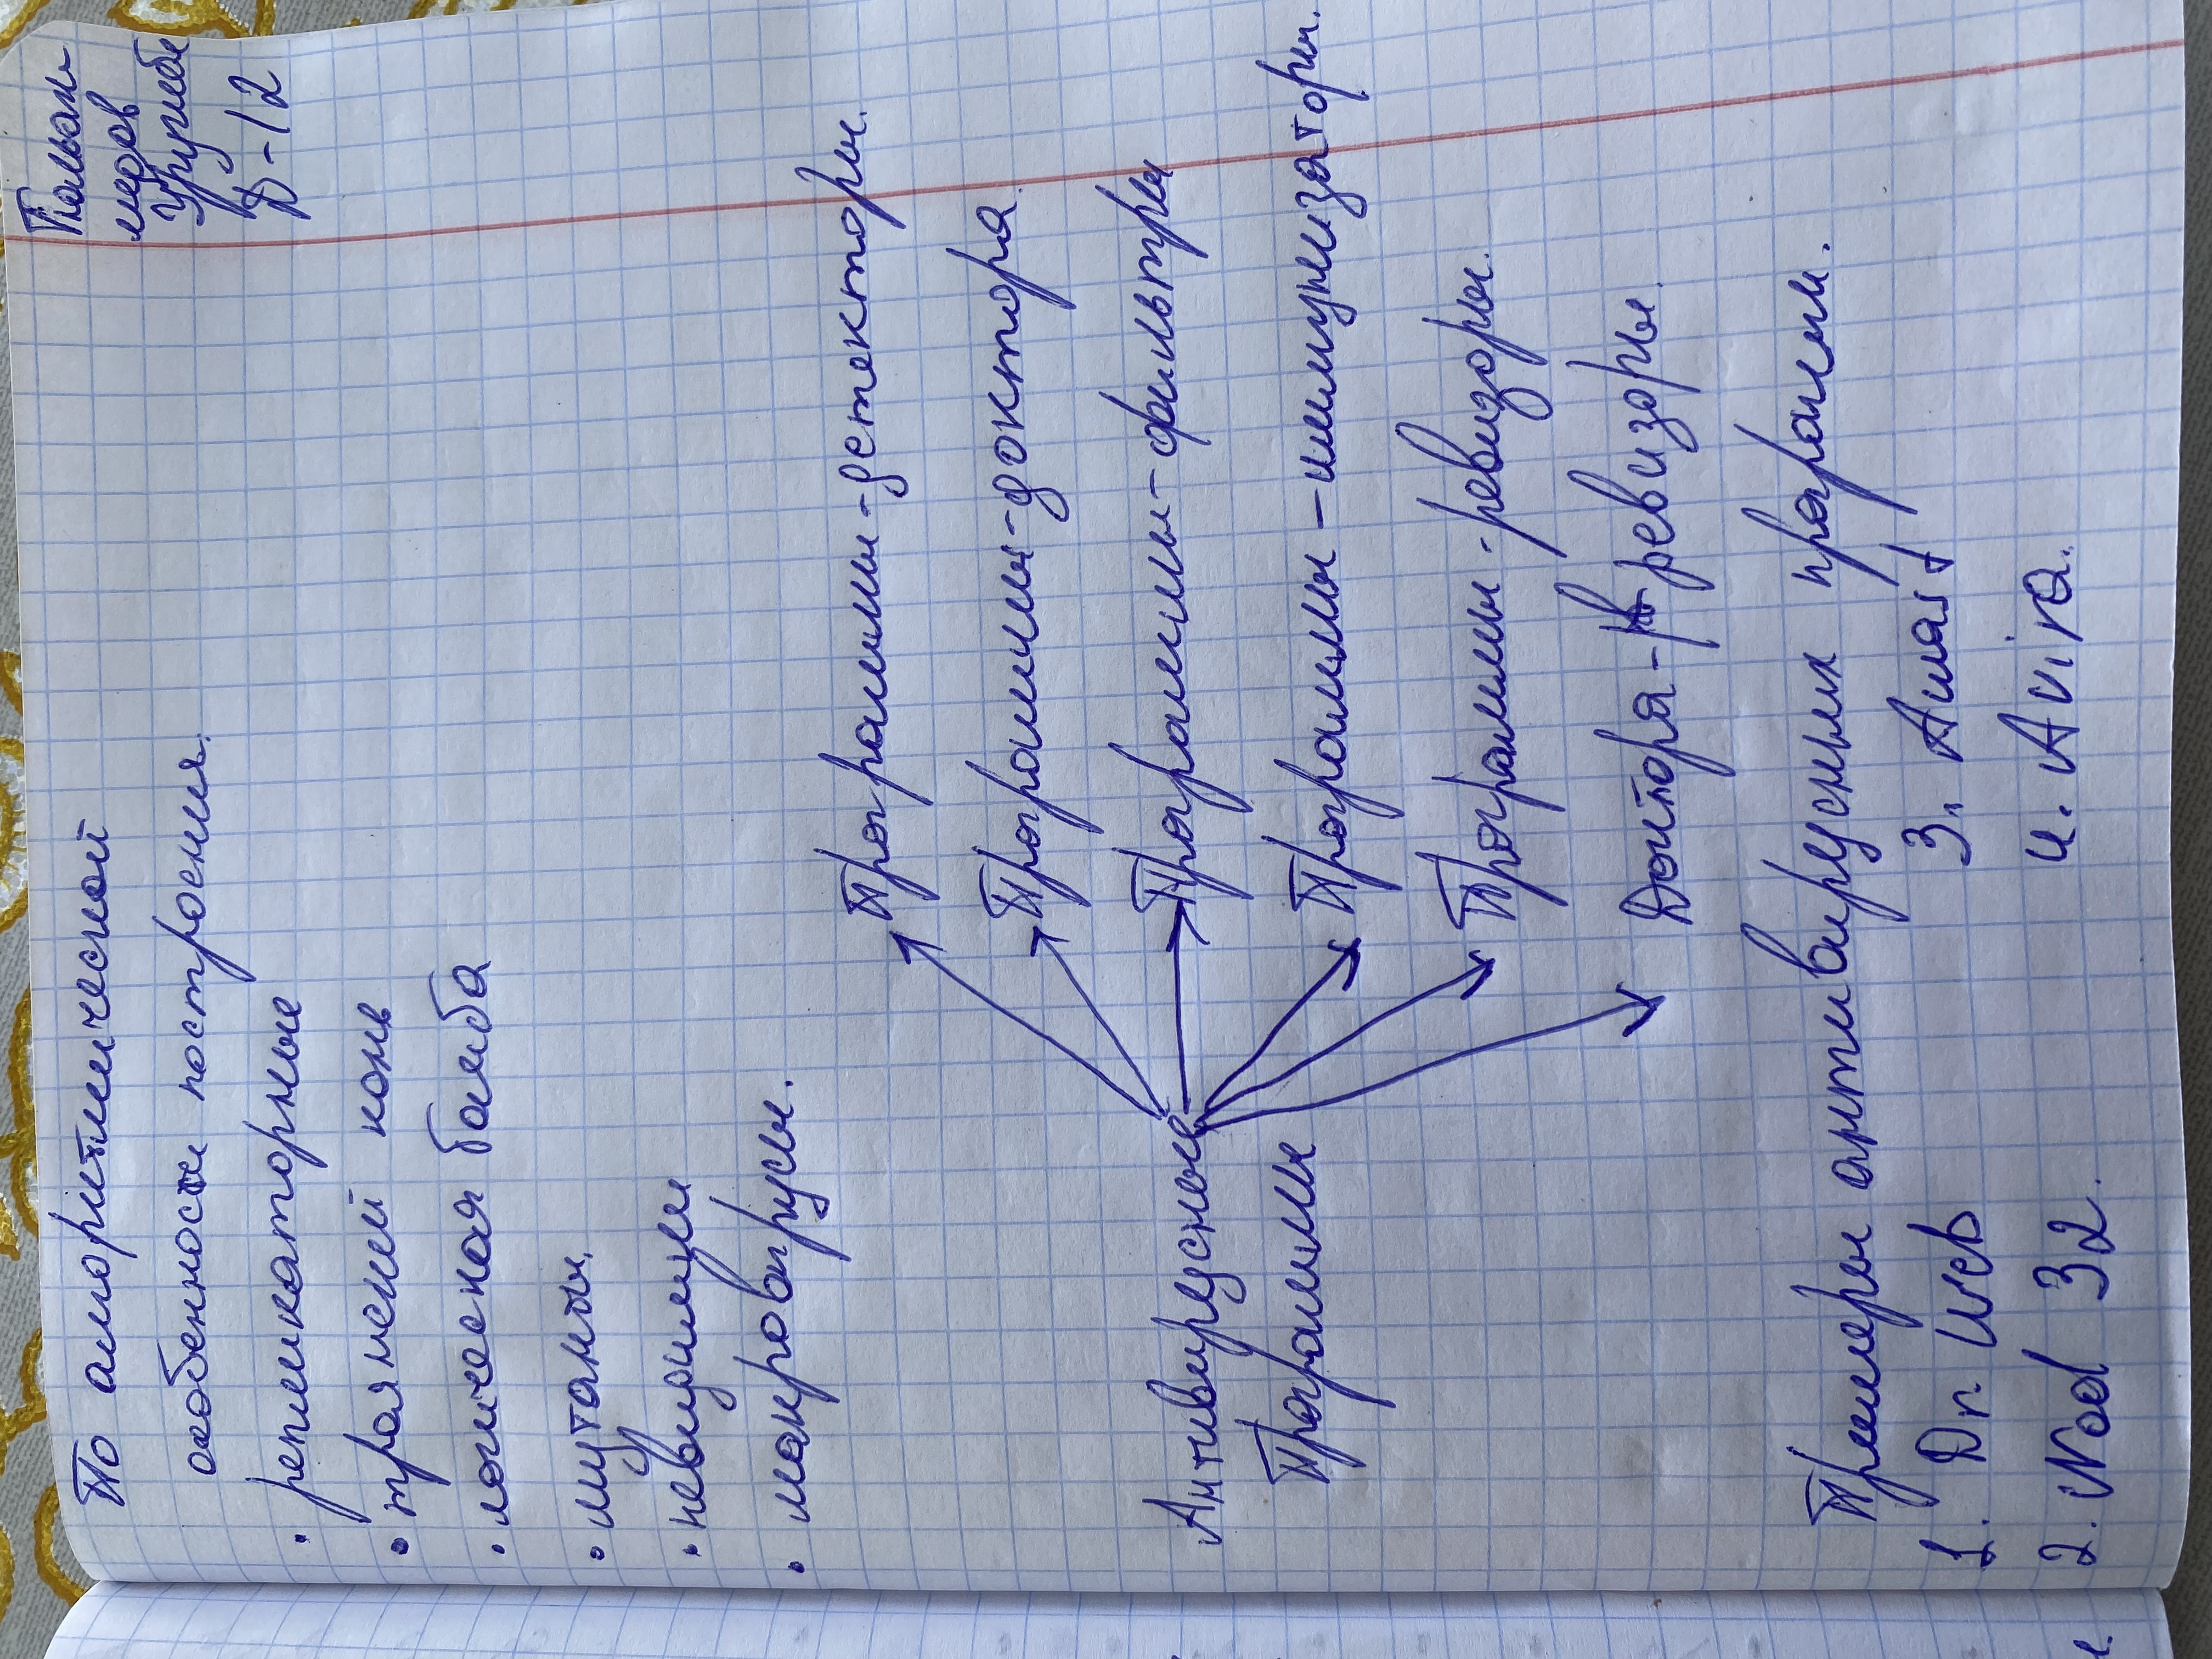 По алгоритмической
особенности построения.
• репликаторные
• троянский конь
• логическая бомба
• мутанты.
• невидимки
• макровирусы.
Антивирусные
Программы
Программы-детекторы.
Программы-доктора.
Программы-фильтры
Программы-иммунизаторы.
Программы-ревизоры.
Доктора-ревизоры.
Примеры антивирусных программ.
1. Dr Web
2. Nod 32.
3. Avast
4. Avira.
Д-12